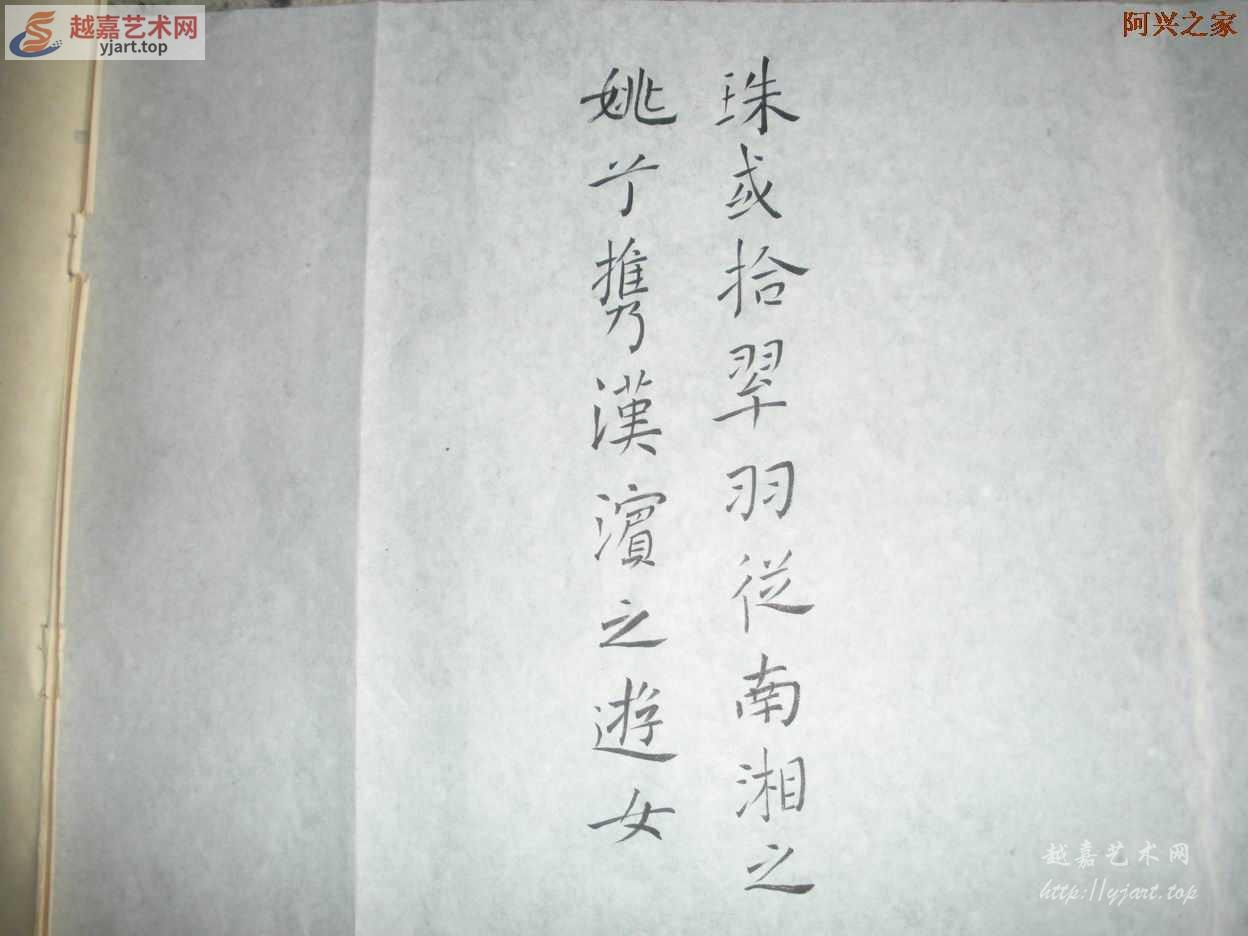 越嘉艺术网
yjart.top
阿兴之家
珠或拾翆羽従南湘之
姚兮携漢濱之遊女
越嘉艺术网
http://yjart.top